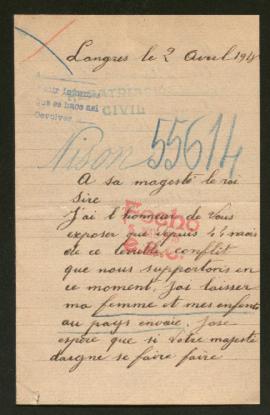 Langres le 2 Avril 191
CIVIL
Devolver
Nison 55614
A sa magesté le roi
Sire
J'ai l'honneur de Vous
exposer que depuis 4 mois
de ce terrible conflit
que nous supportons en
ce moment, J'ai laisser
ma femme et mes enfents
au pays envaie. J'ose
espere que si Votre majesté
daigne se faire faire